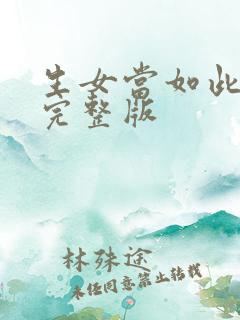 生女当如此
完整版
林殊途
未经同意禁止转载